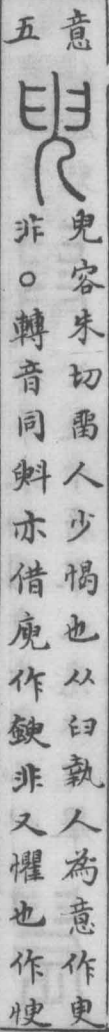 意
五
臾容朱切畱人少愒也从臼執人為意作臾
非○轉音同斞亦借庾作非又懼也作